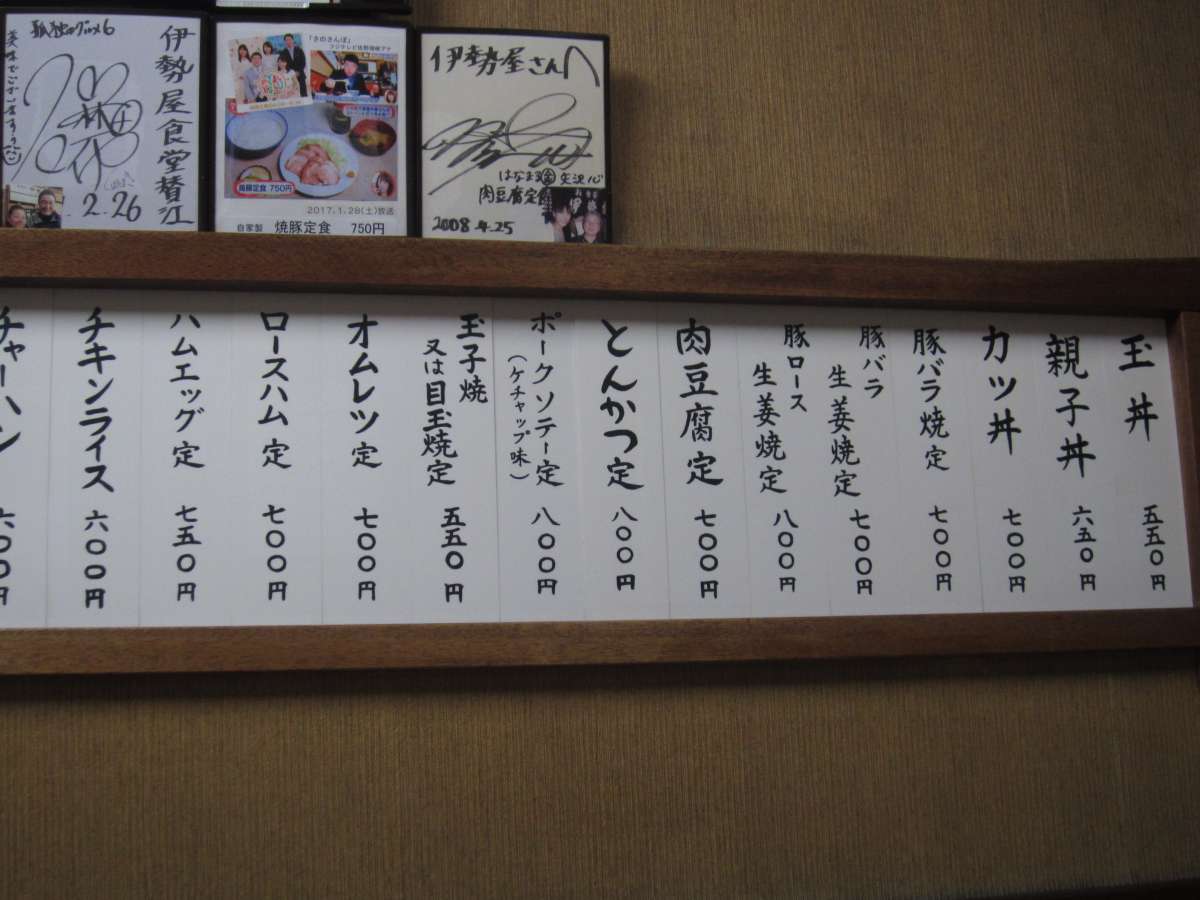 孤独のグルメ6
伊勢屋食堂賛江
2.26
「さのさんぽ」
フジテレビ佐野瑞樹アナ
焼豚定食 750円
2017.1.28(土)放送
自家製 焼豚定食 750円
伊勢屋さんへ
はなまる金 矢沢心
肉豆腐定食
2008.4.25
玉丼 五五〇円
親子丼 六五〇円
カツ丼 七〇〇円
豚バラ焼定 七〇〇円
豚バラ
生姜焼定 七〇〇円
豚ロース
生姜焼定 八〇〇円
肉豆腐定 七〇〇円
とんかつ定 八〇〇円
ポークソテー定 八〇〇円
(ケチャップ味)
玉子焼
又は目玉焼定 五五〇円
オムレツ定 七〇〇円
ロースハム定 七〇〇円
ハムエッグ定 七五〇円
チキンライス 六〇〇円
チャーハン 六〇〇円